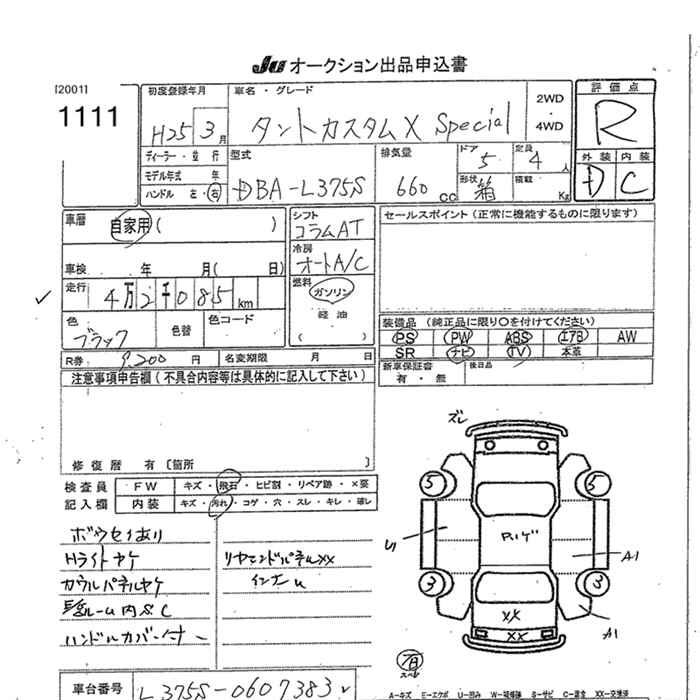 Ju オークション出品申込書
[2001]
1111
初度登録年月
H25 3月
車名・グレード
タントカスタムX Special
2WD
・
4WD
評価点
R
外装 内装
D C
ディーラー・並行
モデル年式 年
ハンドル 左・右
型式
DBA-L375S
排気量
660 cc
ドア
5
定員
4人
形状
箱
積載
Kg
車歴
自家用( )
車検 年 月( 日)
走行
4万2千085km
色
ブラック
色替
色コード
R券
9,200円
名変期限 月 日
シフト
コラムAT
冷房
オートA/C
燃料
ガソリン
軽油
( )
セールスポイント (正常に機能するものに限ります)
装備品 (純正品に限り○を付けてください)
PS PW ABS エアB AW
SR ナビ TV 本革
新車保証書
有・無
後日品
注意事項申告欄 (不具合内容等は具体的に記入して下さい)
修復歴 有 〔箇所 〕
検査員
記入欄
FW キズ・飛石・ヒビ割・リペア跡・×要
内装 キズ・汚れ・コゲ・穴・スレ・キレ・破レ
Hライトヤケ
カウルパネルヤケ
ハンドルカバー付
リヤエンドパネルXX
インナーU
ズレ
5
5
Pいげ
U
A1
3
3
XX
XX
A1
車台番号
L375S-0607383
A-キズ E-エクボ U-凹み W-補修跡 S-サビ C-腐食 XX-交換済